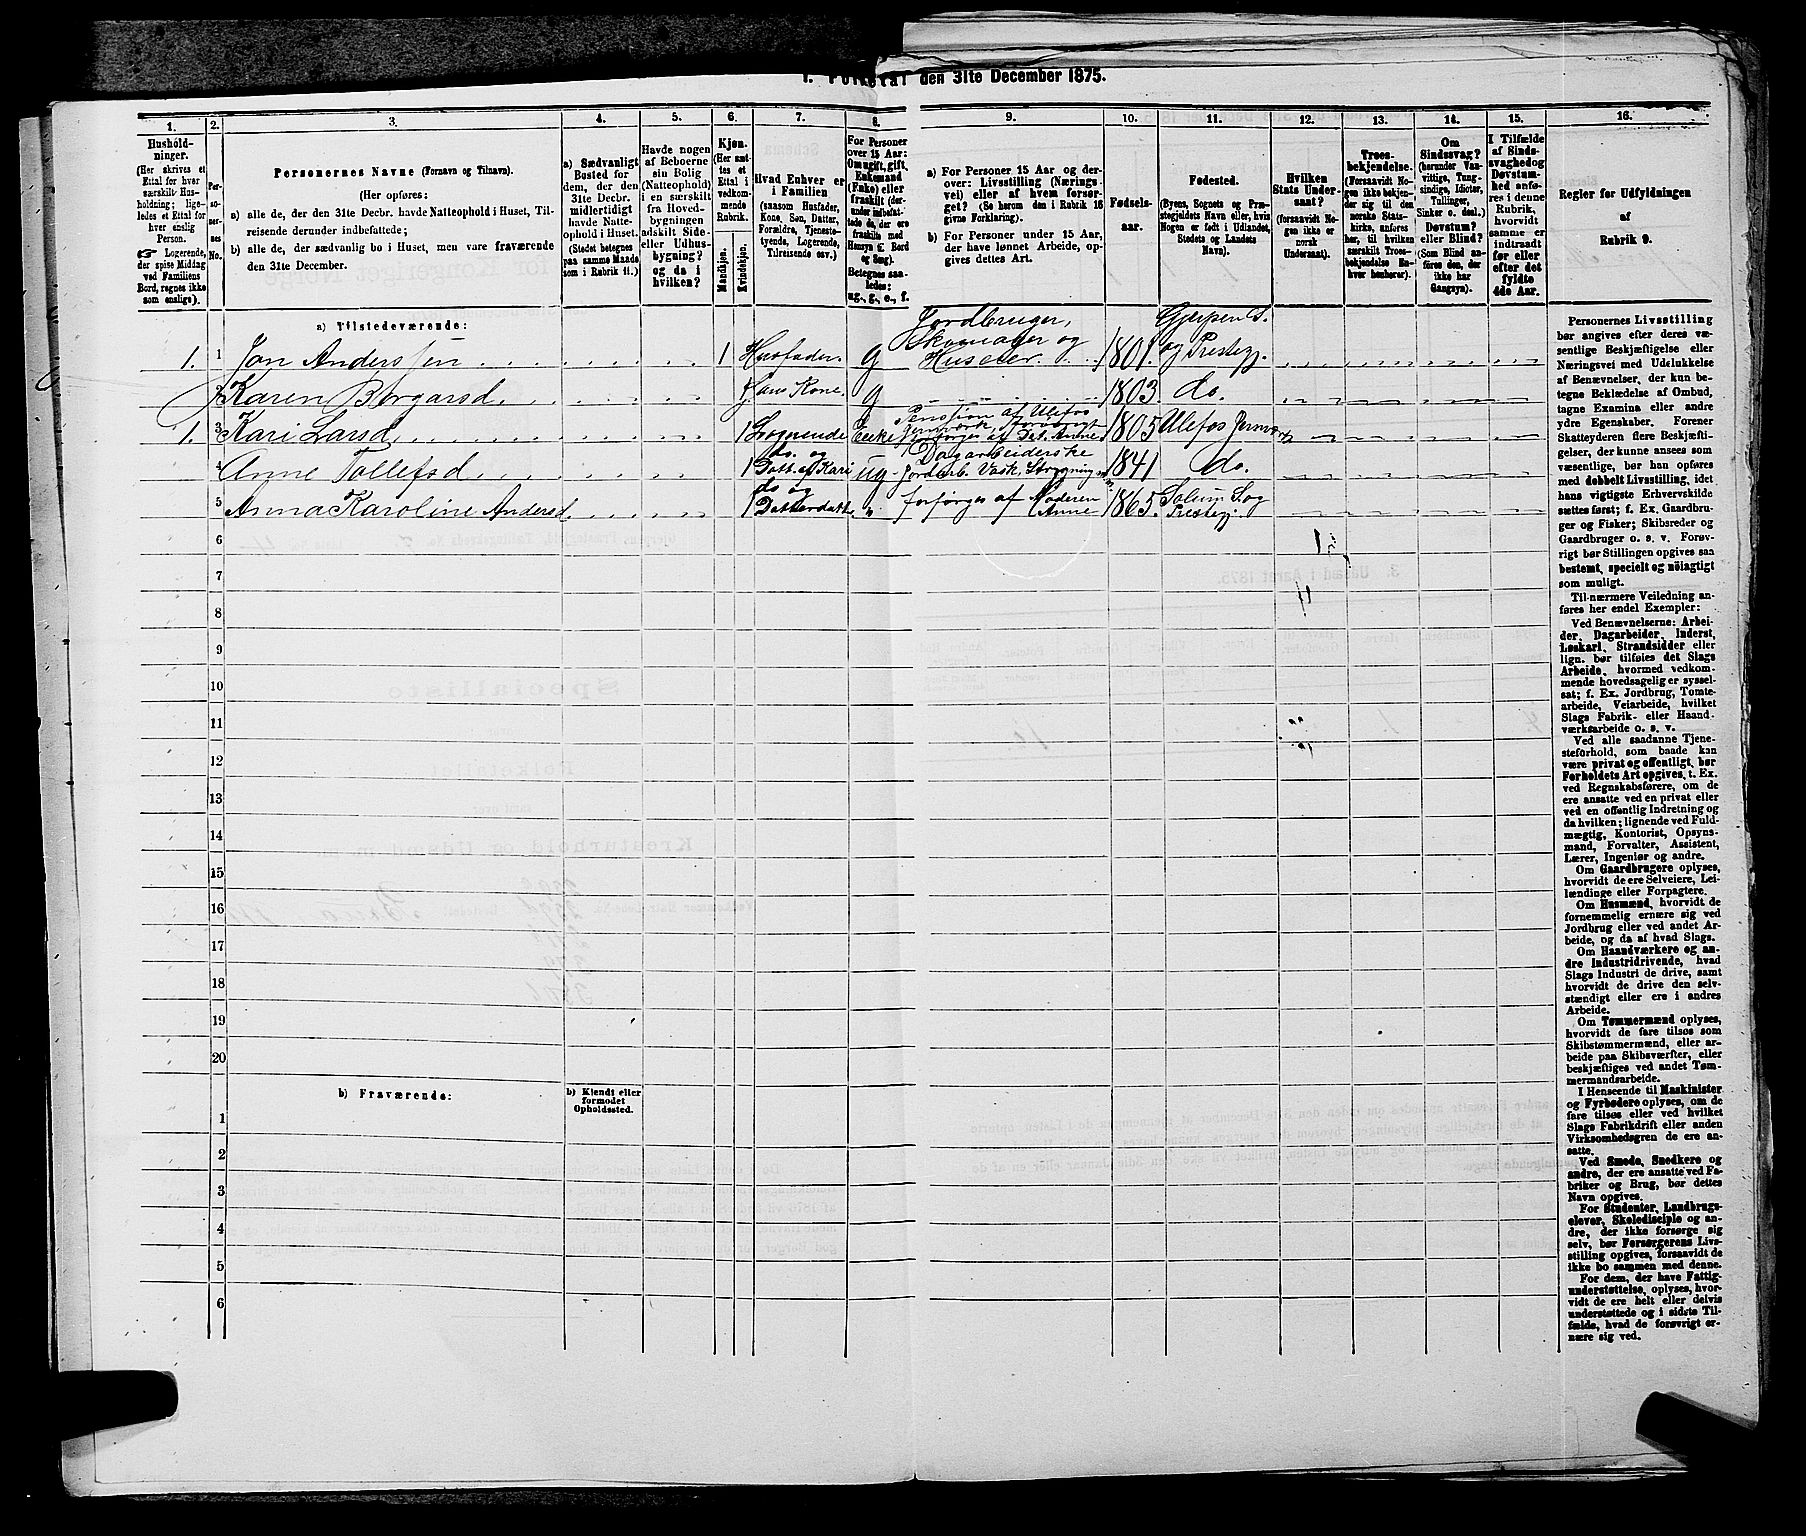 den 31te December 1875.
1.
Hushold-
ninger.
(Her skrives et
Ettal for hver
særskilt Hus-
holdning; lige-
ledes et Ettal for
hver enslig
Person.
☞ Logerende,
der spise Middag
ved Familiens
Bord, regnes ikke
som enslige).
2.
Per-
so-
ner-
nes
No.
3.
Personernes Navne (Fornavn og Tilnavn).
(Her opføres:
a) alle de, der den 31te Decbr. havde Natteophold i Huset, Til-
reisende derunder indbefattede;
b) alle de, der sædvanlig bo i Huset, men vare fraværende
den 31te December.
4.
a) Sædvanligt
Bosted for
dem, der den
31te Decbr.
midlertidigt
havde Natte-
ophold i Huset.
(Stedet betegnes
paa samme Maade
som i Rubrik 11.)
5.
Havde nogen
af Beboerne
sin Bolig
(Natteophold)
i en særskilt
fra Hoved-
bygningen
adskilt Side-
eller Udhus-
bygning?
og da i
hvilken?
6.
Kjøn.
(Her sæt-
tes et
Ettal i
vedkom-
mende
Rubrik.
Mandkjøn.
Kvindekjøn.
7.
Hvad Enhver er
i Familien
(saasom Husfader,
Kone, Søn, Datter,
Forældre, Tjeneste-
tyende, Logerende,
Tilreisende osv.)
8.
For Personer
over 15 Aar:
Om ugift, gift,
Enkemand
(Enke) eller
fraskilt (der-
under indbefat-
tede de, der ere
fraskilte med
Hensyn til Bord
og Seng).
Betegnes saa-
ledes:
ug., g., e., f.
9.
a) For Personer 15 Aar og der-
over: Livsstilling (Nærings-
vei) eller af hvem forsør-
get? (Se herom den i Rubrik 16
givne Forklaring).
b) For Personer under 15 Aar,
der have lønnet Arbeide, op-
gives dettes Art.
10.
Fødsels-
aar.
11.
Fødested.
(Byens, Sognets og Præ-
stegjeldets Navn eller, hvis
Nogen er født i Udlandet,
Stedets og Landets
Navn).
12.
Hvilken
Stats Under-
saat?
(forsaavidt No-
gen ikke er
norsk
Undersaat).
13.
Troes-
bekjendelse.
(Forsaavidt No-
gen ikke bekjen-
der sig til den
norske Stats-
kirke, anføres
her, til hvilken
særskilt Troes-
bekjendelse En-
hver henhører).
14.
Om
Sindssvag?
(herunder Van-
vittige, Tung-
sindige, Idioter,
Tullinger,
Sinker o. desl.)
Døvstum?
eller Blind?
(Som Blind an-
føres den, der
ikke har
Gangsyn).
15.
I Tilfælde
af Sinds-
svaghed og
Døvstum-
hed anfø-
res i denne
Rubrik,
hvorvidt
samme er
indtraadt
før eller
efter det
fyldte
4de Aar.
16.
Regler for Udfyldningen
af
Rubrik 9.
a) Tilstedeværende:
1. 1 Jon Anderssen 1 Husfader g Jordbruger, Skomager og Huseier 1801 Gjerpen S. og Prestegj.
2 Karen Borgarsd 1 Hans Kone g 1803 do.
1. 3 Kari Larsd 1 Logerende Enke Pension af Ulefos Jernværk, forøvrigt forsørges af Dat. Anne 1805 Ulefos Jernværk
4 Anne Tollefsd 1 do. og Datt. af Kari ug Dagarbeiderske Jordarb. Vask, Strygning 1841 do.
5 Anna Karoline Andersd 1 do og Datterdatt. " forsørges af Moderen Anne 1865 Solum S. og Prestegj.
6
7
8
9
10
11
12
13
14
15
16
17
18
19
20
b) Fraværende:
b) Kjendt eller
formodet
Opholdssted.
1
2
3
4
5
6
Personernes Livsstilling
bør angives efter deres væ-
sentlige Beskjæftigelse eller
Næringsvei med Udelukkelse
af Benævnelser, der kun be-
tegne Beklædelse af Ombud,
tagne Examina eller andre
ydre Egenskaber. Forener
Skatteyderen flere Beskjæfti-
gelser, der kunne ansees som
væsentlige, bør han opføres
med dobbelt Livsstilling, idet
hans vigtigste Erhvervskilde
sættes først; f. Ex. Gaardbru-
ger og Fisker; Skibsreder og
Gaardbruger o. s. v. Forøv-
rigt bør Stillingen opgives saa
bestemt, specielt og nöiagtigt
som muligt.
Til nærmere Veiledning an-
føres her endel Exempler:
Ved Benævnelserne: Arbei-
der, Dagarbeider, Inderst,
Løskarl, Strandsidder eller
lign. bør tilføies det Slags
Arbeide, hvormed vedkom-
mende hovedsagelig er syssel-
sat; f. Ex. Jordbrug, Tomte-
arbeide, Veiarbeide, hvilket
Slags Fabrik- eller Haand-
værksarbeide o. s. v.
Ved alle saadanne Tjene-
steforhold, som baade kan
være privat og offentligt, bør
Forholdets Art opgives, t. Ex.
ved Regnskabsførere, om de
ere ansatte ved en privat eller
ved en offentlig Indretning og
da hvilken; lignende ved Fuld-
mægtig, Kontorist, Opsyns-
mand, Forvalter, Assistent,
Lærer, Ingeniør og andre.
Om Gaardbrugere oplyses,
hvorvidt de ere Selveiere, Lei-
lændinge eller Forpagtere.
Om Husmænd, hvorvidt de
fornemmelig ernære sig ved
Jordbrug eller ved andet Ar-
beide, og da af hvad Slags.
Om Haandværkere og an-
dre Industridrivende, hvad
Slags Industri de drive, samt
hvorvidt de drive den selv-
stændigt eller ere i andres
Arbeide.
Om Tømmermænd oplyses,
hvorvidt de fare tilsøs som
Skibstømmermænd, eller ar-
beide paa Skibsværfter, eller
beskjæftiges ved andet Tøm-
mermandsarbeide.
I Henseende til Maskinister
og Fyrbødere oplyses, om de
fare tilsøs eller ved hvilket
Slags Fabrikdrift eller anden
Virksomhedsgren de ere an-
satte.
Ved Smede, Snedkere og
andre, der ere ansatte ved Fa-
briker og Brug, bør dettes
Navn opgives.
For Studenter, Landbrugs-
elever, Skoledisciple og an-
dre, der ikke forsørge sig
selv, bør Forsørgerens Livs-
stilling opgives, forsaavidt de
ikke bo sammen med denne.
For dem, der have Fattig-
understøttelse, oplyses, hvor-
vidt de ere helt eller delvis
understøttede og i sidste Til-
fælde, hvad de forøvrigt er-
nære sig ved.